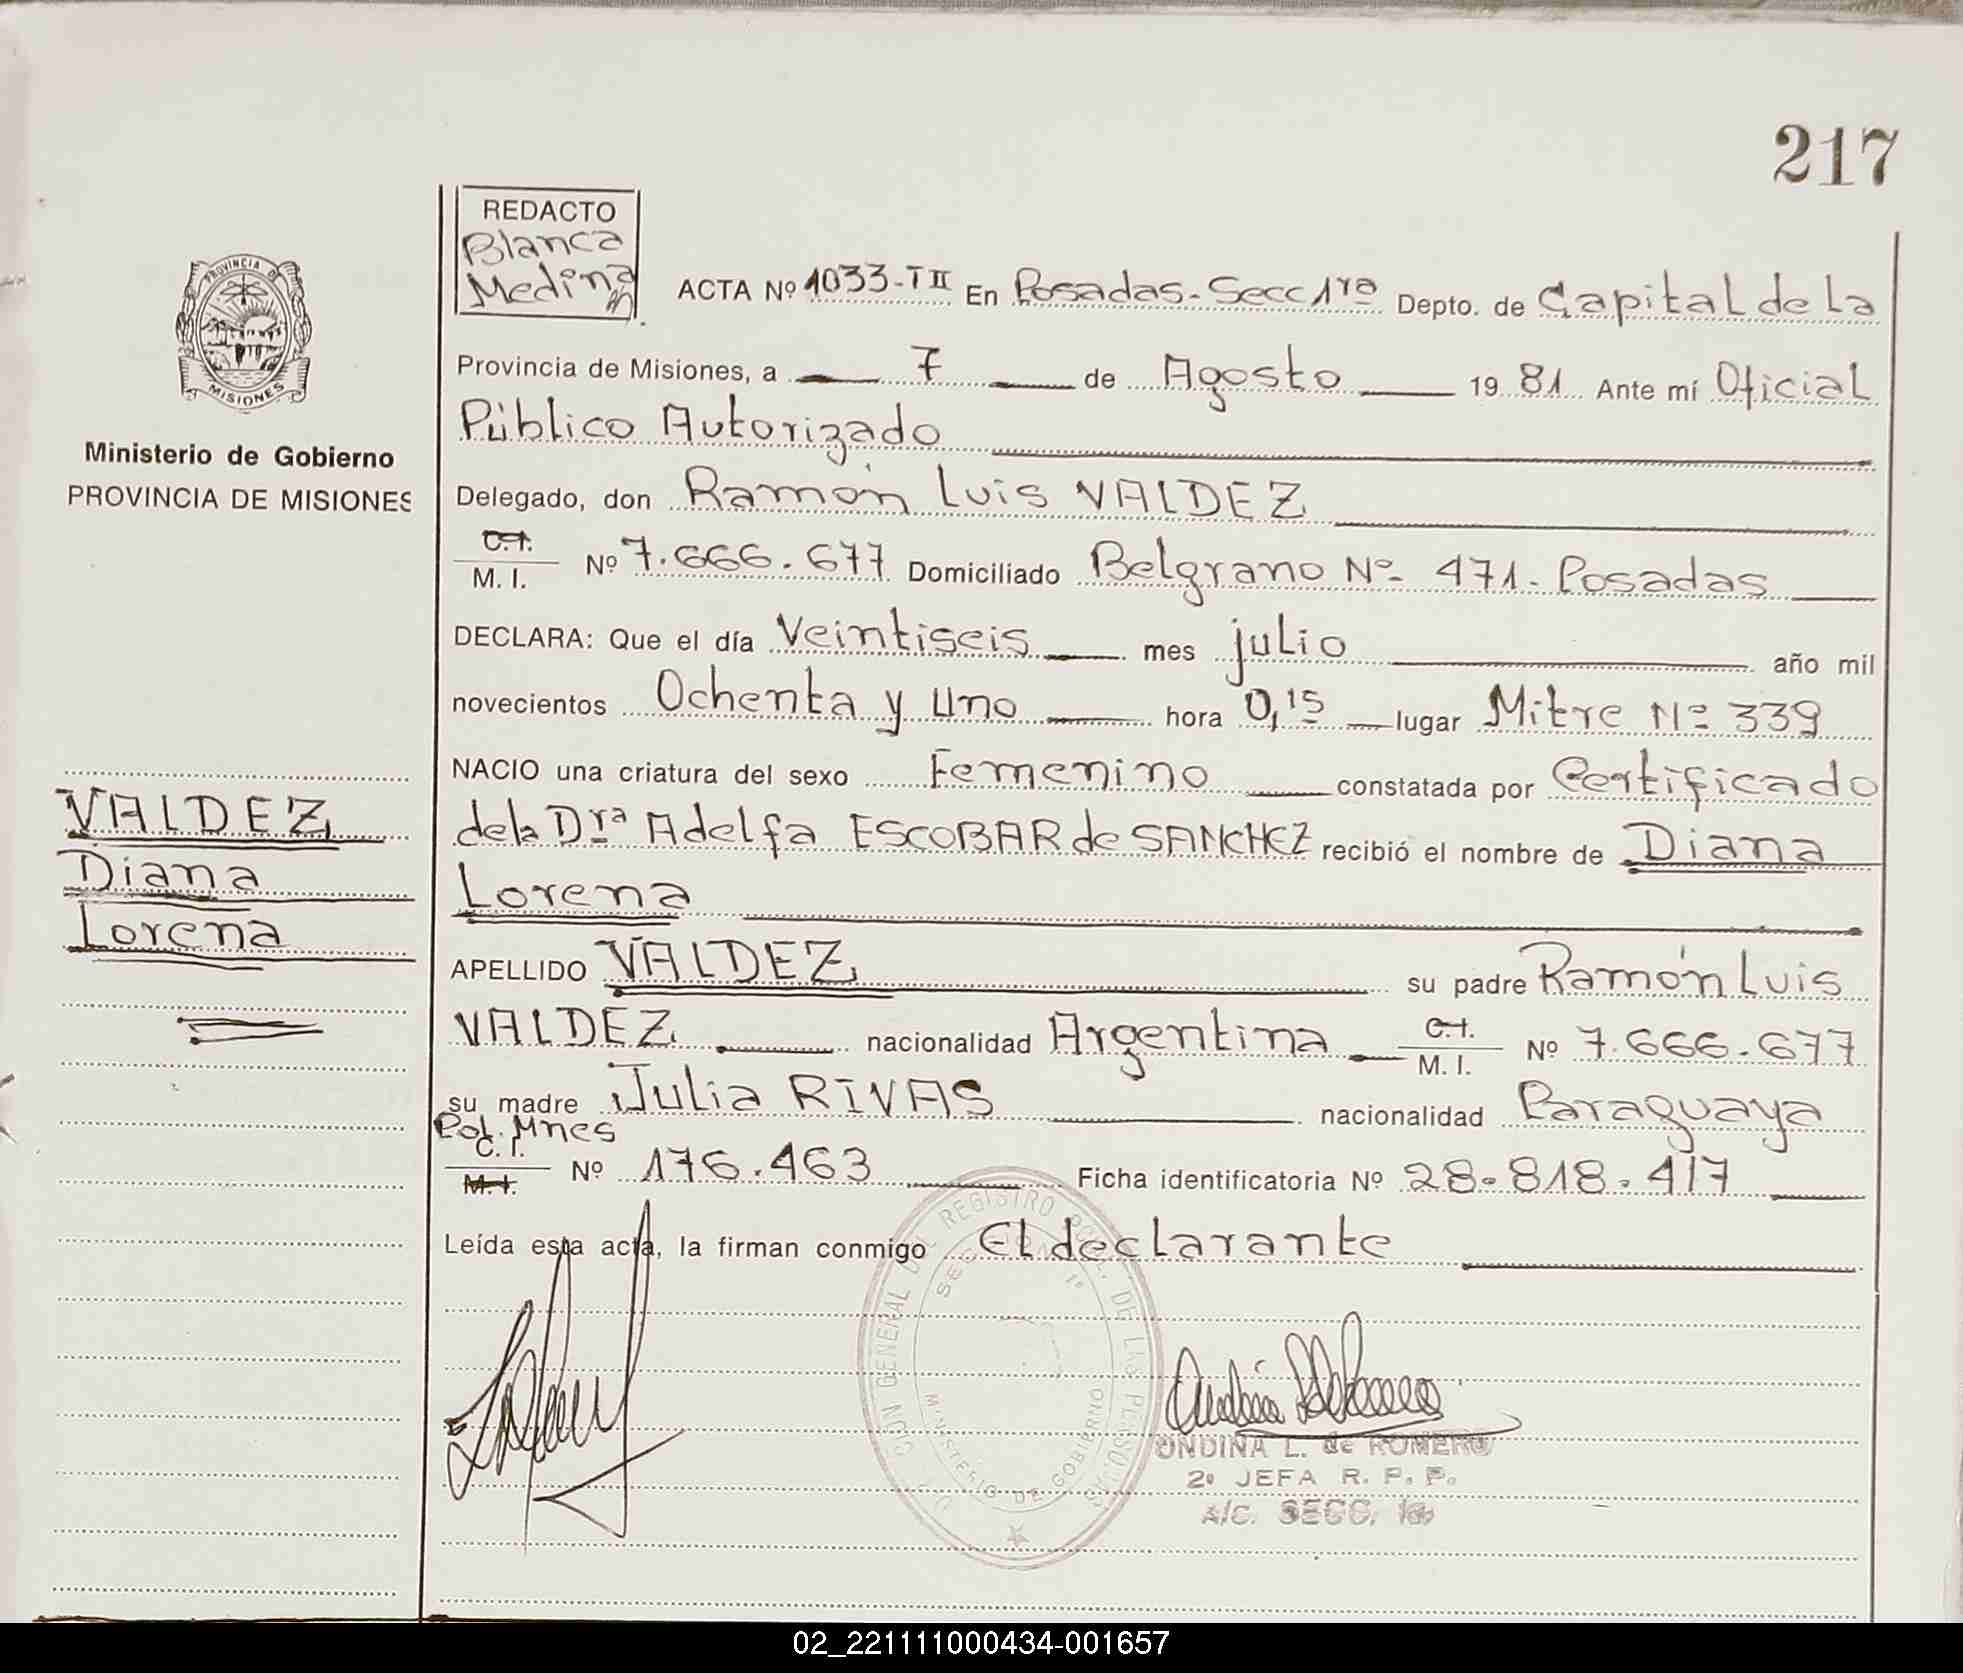 217
REDACTO
Blanca
Medina
PROVINCIA DE
MISIONES
Ministerio de Gobierno
PROVINCIA DE MISIONES
VALDEZ
Diana
Lorena
ACTA Nº 1033-TII En Posadas-Secc 1ra Depto. de Capital de La
Provincia de Misiones, a 7 de Agosto 19 81 Ante mí Oficial
Público Autorizado
Delegado, don Ramón Luis VALDEZ
C.I.
M. I. Nº 7.666.677 Domiciliado Belgrano Nº 471. Posadas
DECLARA: Que el día Veintiseis mes julio año mil
novecientos Ochenta y Uno hora 0,15 lugar Mitre Nº 339
NACIO una criatura del sexo Femenino constatada por Certificado
de la Drª Adelfa ESCOBAR de SANCHEZ recibió el nombre de Diana
Lorena
APELLIDO VALDEZ su padre Ramón Luis
VALDEZ nacionalidad Argentina C.I. M. I. Nº 7.666.677
su madre Julia RIVAS nacionalidad Paraguaya
Pol. Mnes
C. I.
M. I. Nº 176.463 Ficha identificatoria Nº 28.818.417
Leída esta acta, la firman conmigo El declarante
GENERAL DEL REGISTRO DE LAS PERSONAS
MINISTERIO DE GOBIERNO
ONDINA L. de ROMERO
2º JEFA R. P. P.
A/C. SECC. 1a
02_221111000434-001657